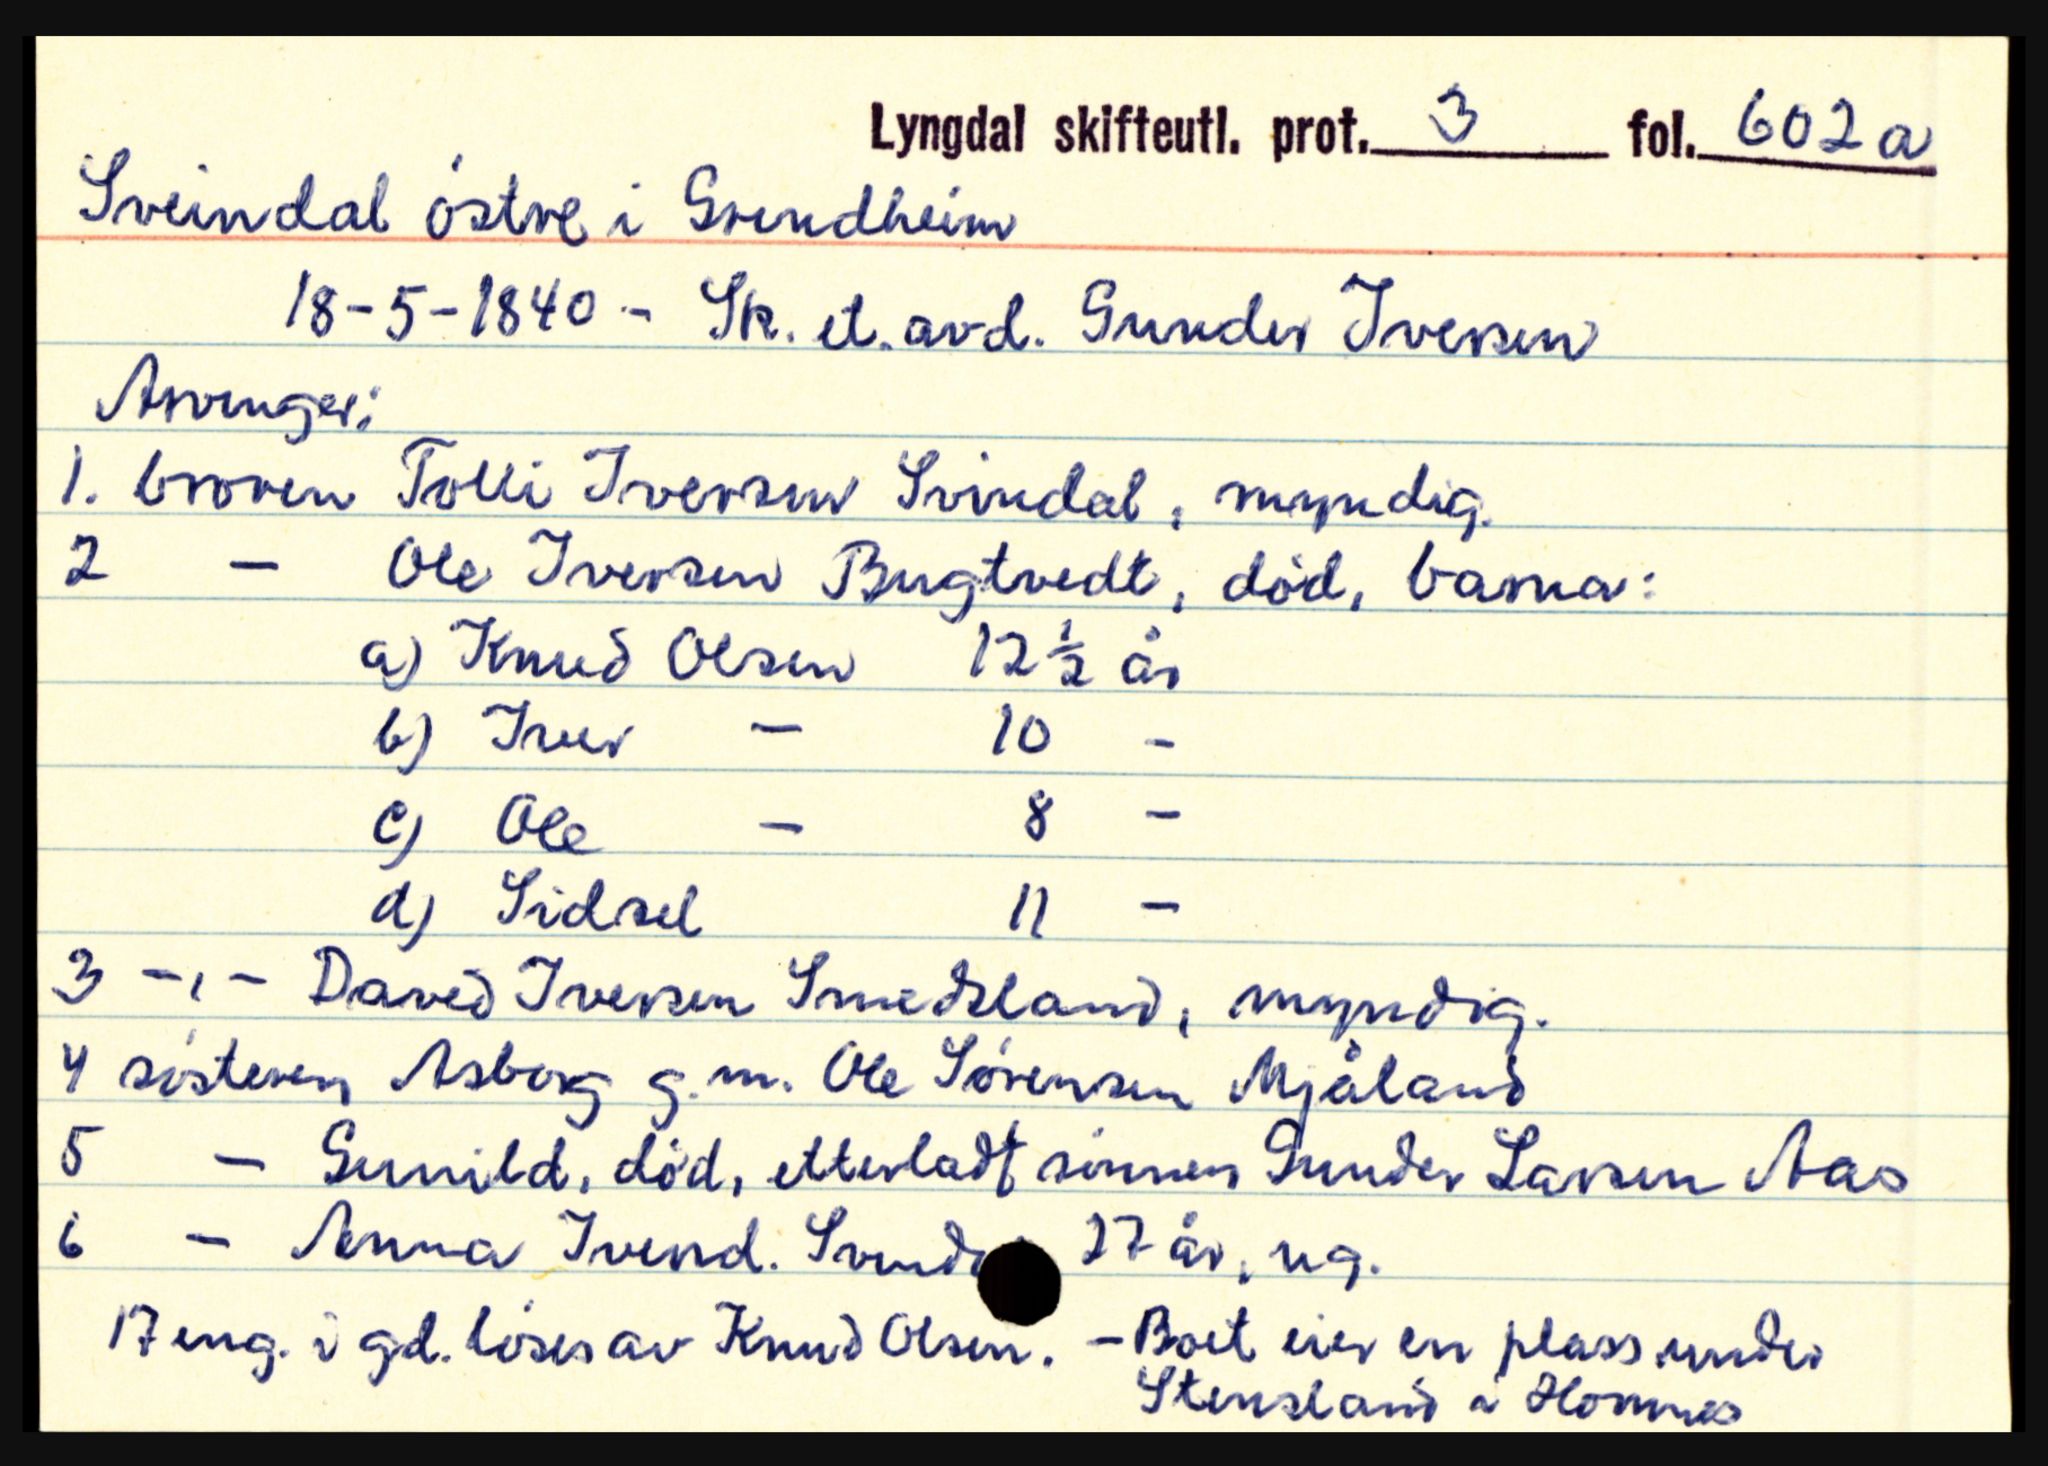 Lyngdal skifteutl. prot. 3 fol. 602a
Sveindal östre i Grendheim
18-5-1840 - Sk. et. avd. Gunder Iversen
Arvinger:
1. broren Tolli Iversen Svindal, myndig.
2 - Ole Iversen Bugtvedt, död, barna:
a) Knud Olsen 12½ år
b) Iver - 10 -
c) Ole - 8 -
d) Sidsel 11 -
3 -,- David Iversen Smedsland, myndig.
4 sösteren Asborg g.m. Ole Sörensen Mjåland
5 - Gunild, död, etterladt sönnen Gunder Larsen Aas
6 - Anna Iversd. 27 år, ug.
17 eng. i gd. löses av Knud Olsen. - Boet eier en plass under
Stensland i